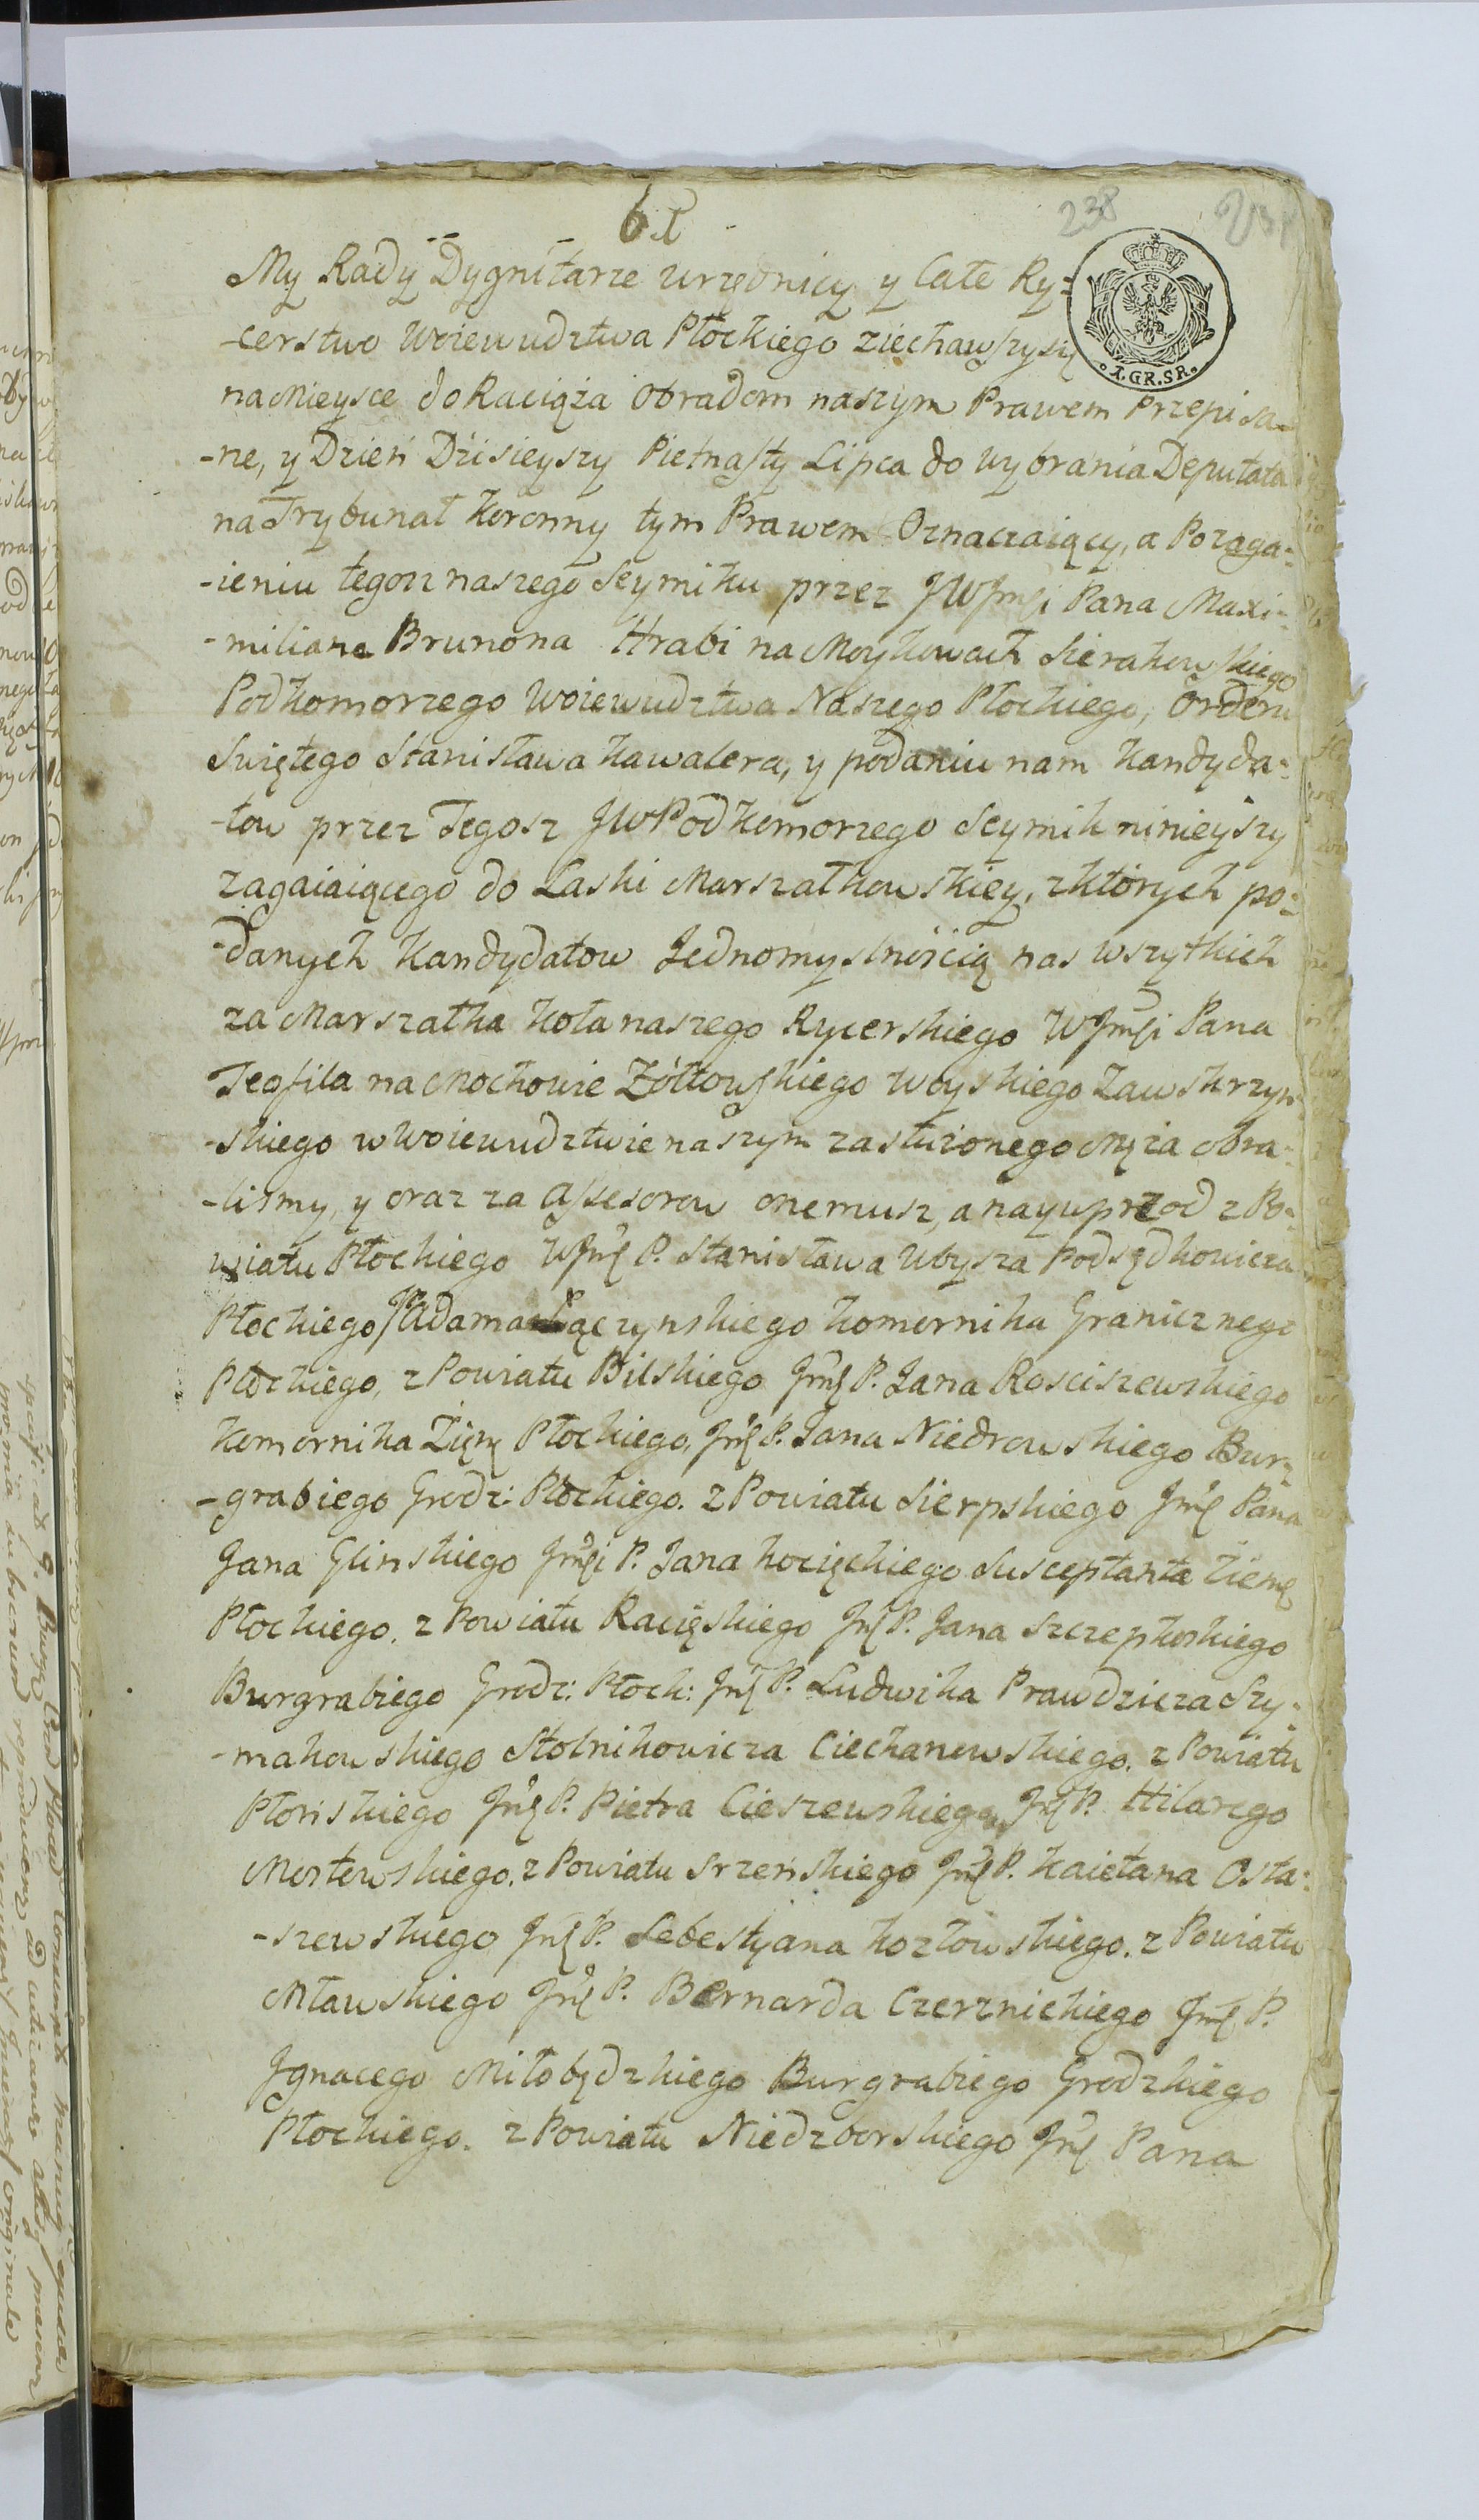 238
My Rady Dygnitarze urzędnicy y Całe Ry=
-cerstwo Woiewudztwa Płockiego ziechawszysię
.I.GR.SR.
na Mieysce do Raciąża Obradom naszym Prawem Przepisa=
-ne, y Dzień Dzisieyszy Pietnasty Lipca do Wybrania Deputata
na Trybunał Koronny tym Prawem Oznaczaiący, a Pozaga=
-ieniu tegorz naszego Seymiku przez JWJmҫi Pana Maxi=
-miliana Brunona Hrabi na Moykowach Sierakowskiego
Podkomorzego Woiewudztwa Naszego Płockiego, Orderu
Swiętego Stanisława Kawalera, y podaniu nam Kandyda=
-tow przez Tegosz JWPodkomorzego Seymik ninieyszy
zagaiaiącego do Laski Marszałkowskiey, zktórych po=
-danych Kandydatow Jednomyslnością nas wszytkich
za Marszałka Koła naszego Rycerskiego WJmҫi Pana
Teofila na Mochowie Zółtowskiego Woyskiego Zawskrzyn
-skiego w Woiewudztwie naszym zasłużonego Męża obra=
-lismy, y oraz za Assesorow onemusz, a nayuprzod z Po=
wiatu Płockiego WJmҫ P. Stanisława Ubysza Podsędkowicza
Płockiego Adama Łączynskiego Komornika Granicznego
Płockiego, z Powiatu Bilskiego Jmҫ P. Jana Rosciszewskiego
Komornika Ziem Płockiego, Jmҫ P. Jana Niedrowskiego Bur=
-grabiego Grodz: Płockiego. z Powiatu Sierpskiego Jmҫ Pana
Jana Glinskiego Jmҫi P. Jana Kocięckiego Susceptanta Ziem
Płockiego. z Powiatu Racięskiego Jmҫ P. Jana Szczepkoskiego
Burgrabiego Grodz: Płock: Jmҫ P. Ludwika Prawdzicza Szy=
-makowskiego Stolnikowicza Ciechanowskiego. z Powiatu
Płońskiego Jmҫ P. Pietra Cieszewskiego, Jmҫ P. Hilarego
Mostowskiego. z Powiatu Srzeńskiego Jmҫ P. Kaietana Osta=
-szewskiego Jmҫ P. Sebestyana Kozłowskiego. z Powiatu
Mławskiego Jmҫ P. Bernarda Czerznickiego Jmҫ P.
Jgnacego Miłobędzkiego Burgrabiego Grodzkiego
Płockiego. z Powiatu Niedzborskiego Jmҫ Pana